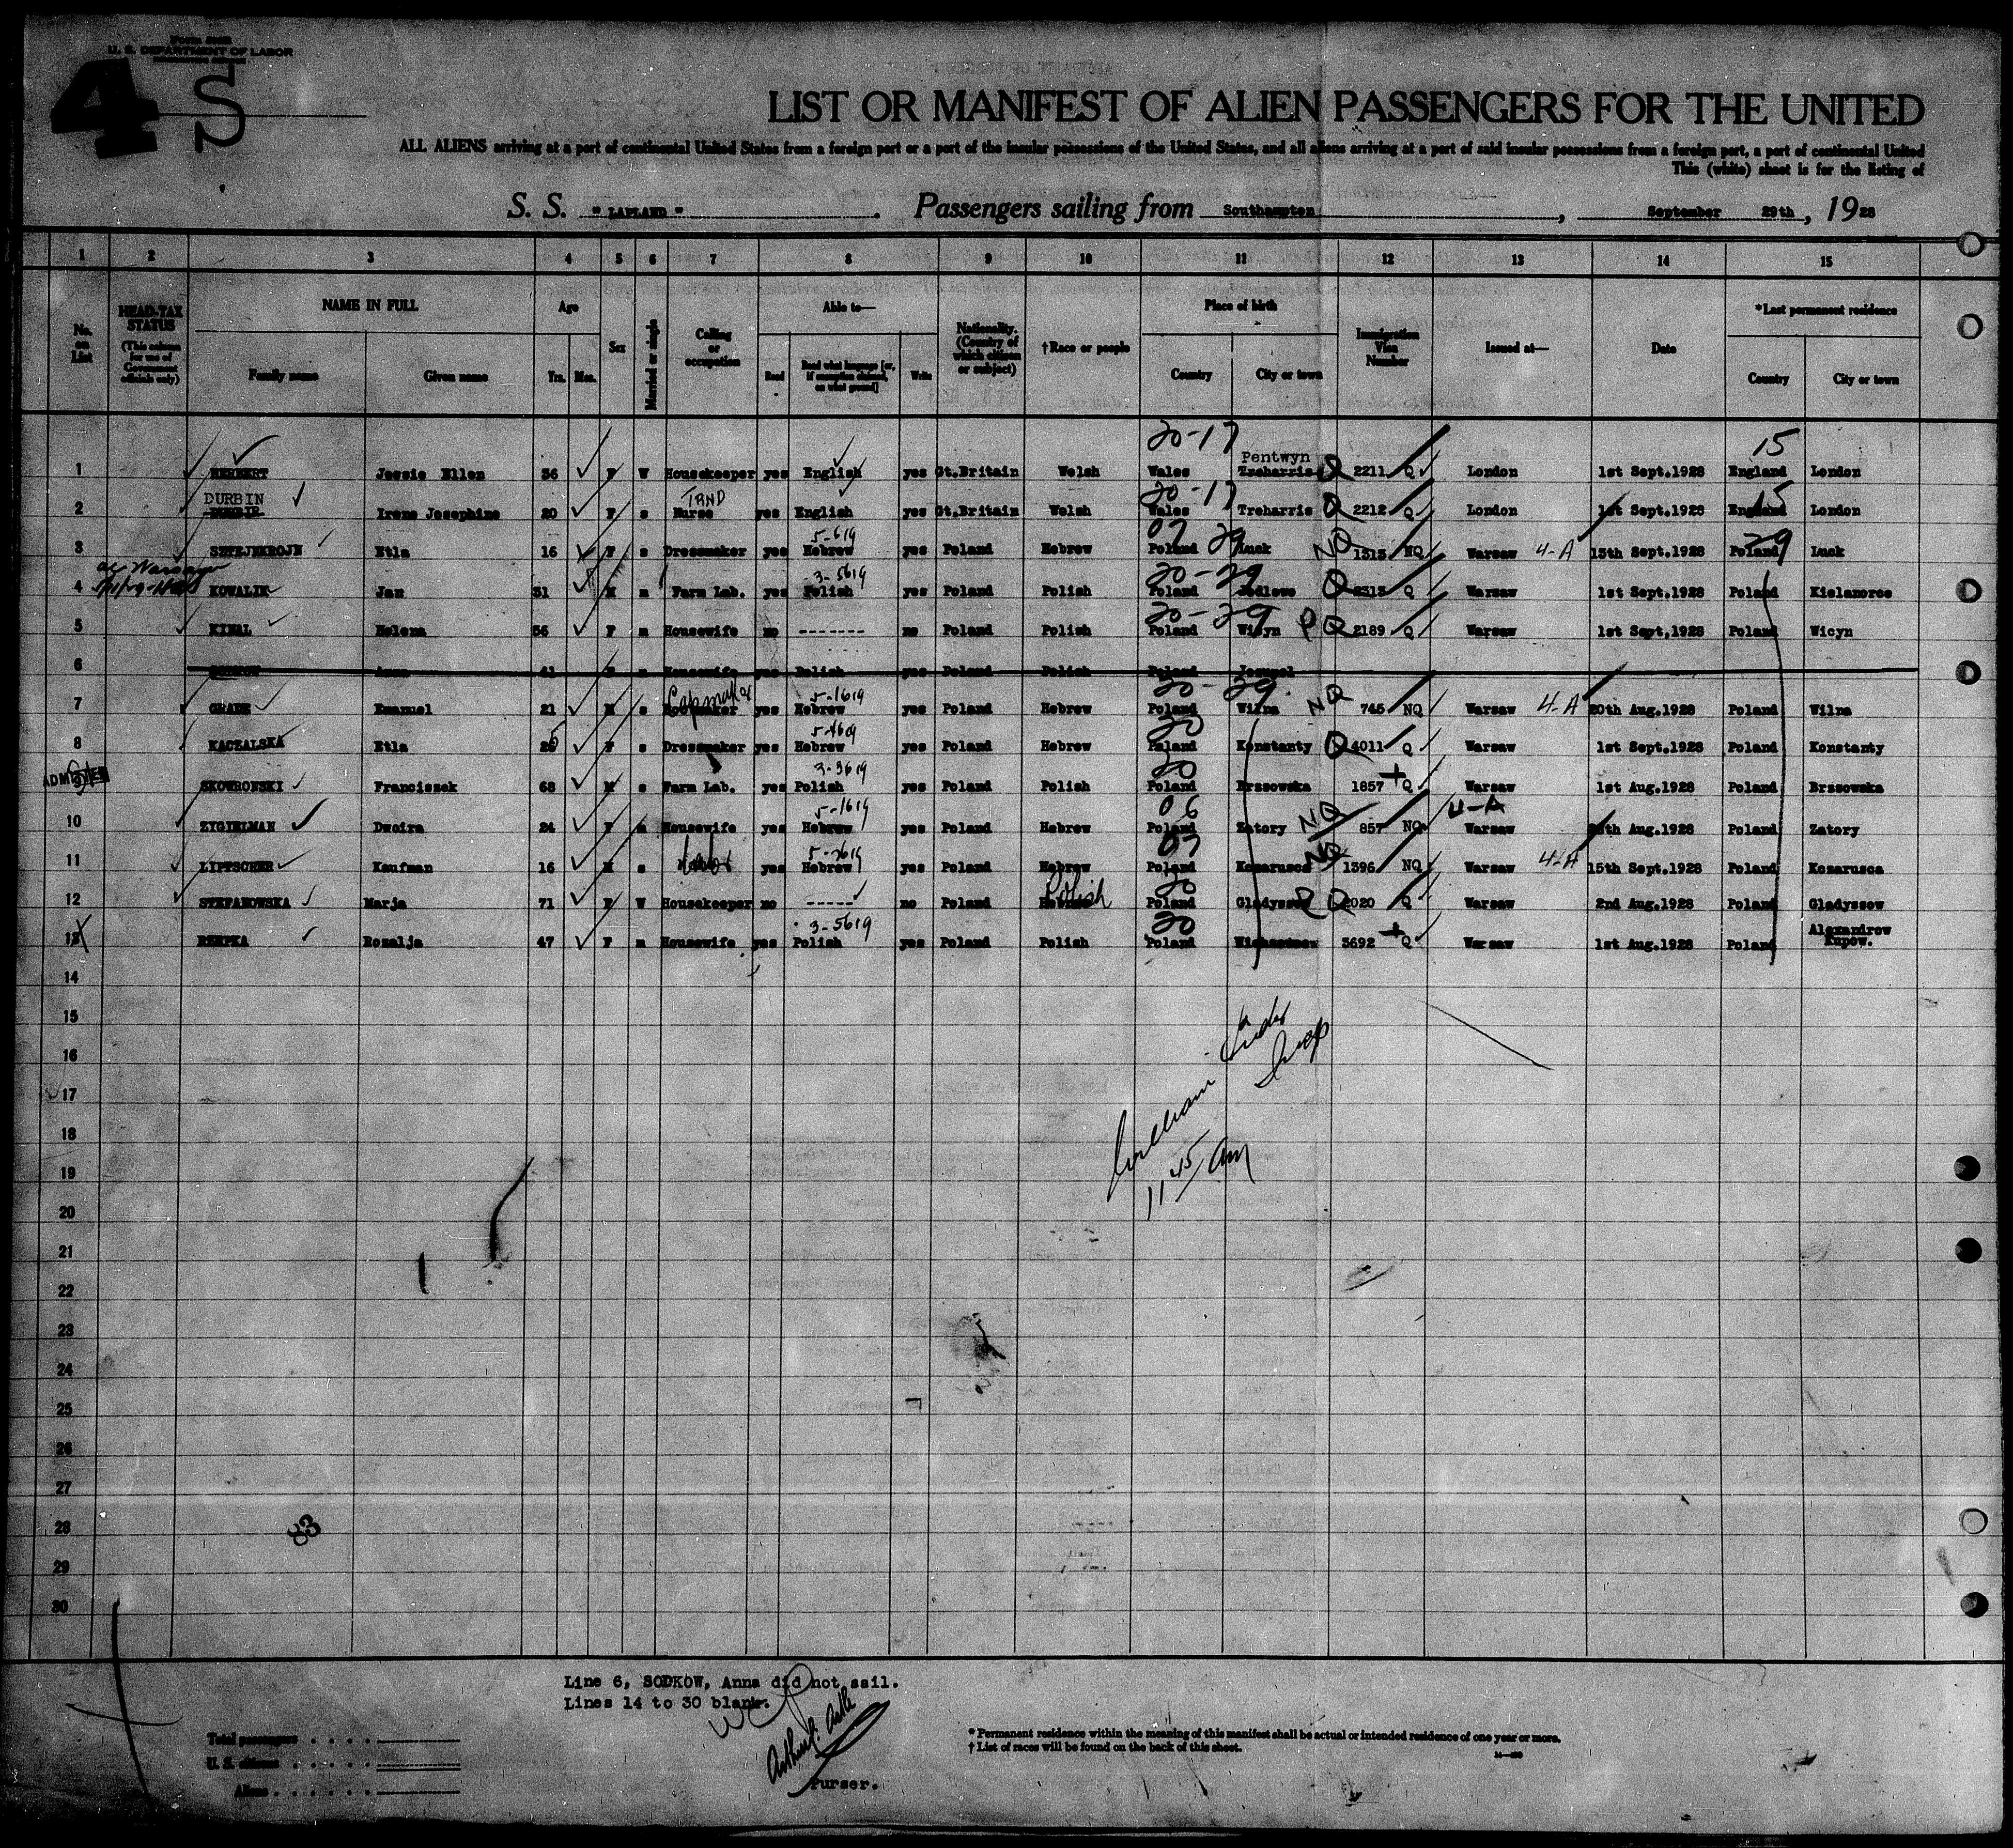 U. S. DEPARTMENT OF LABOR
4 S
LIST OR MANIFEST OF ALIEN PASSENGERS FOR THE UNITED
ALL ALIENS arriving at a port of continental United States from a foreign port or a port of the insular possessions of the United States, and all aliens arriving at a port of said insular possessions from a foreign port, a port of continental United
This (white) sheet is for the listing of
S. S. "LAPLAND" Passengers sailing from Southampton, September 29th, 1928
1 2 3 4 5 6 7 8 9 10 11 12 13 14 15
No. on List
HEAD-TAX STATUS (This column for use of Government officials only)
NAME IN FULL Family name Given name
Age Yrs. Mos.
Sex
Married or single
Calling or occupation
Able to— Read Read what language [or, if exemption claimed, on what ground] Write
Nationality. (Country of which citizen or subject)
†Race or people
Place of birth Country City or town
Immigration Visa Number
Issued at—
Date
*Last permanent residence Country City or town
20-17 Pentwyn 15
1 HERBERT Jessie Ellen 56 F W Housekeeper yes English yes Gt.Britain Welsh Wales Treharris Q 2211 Q London 1st Sept.1928 England London
DURBIN 20-17 15
2 Irene Josephine 20 F s Nurse yes English yes Gt.Britain Welsh Wales Treharris Q 2212 Q London 1st Sept.1928 England London
5-619 07 29 29
3 SZTEJNKROJN Etla 16 F s Dressmaker yes Hebrew yes Poland Hebrew Poland Luck NQ 1313 NQ Warsaw 4-A 15th Sept.1928 Poland Luck
3-5619 20-29
4 KOWALIK Jan 31 M m Farm Lab. yes Polish yes Poland Polish Poland Q Q Warsaw 1st Sept.1928 Poland
20-29
5 KINAL Helena 56 F m Housewife no ------- no Poland Polish Poland Wicyn Q 2189 Q Warsaw 1st Sept.1928 Poland Wicyn
6 Anna 41 F m Housewife yes Polish yes Poland Polish Poland
Capmaker 5-1619 20-29
7 GRADE Emanuel 21 M s yes Hebrew yes Poland Hebrew Poland Wilna NQ 745 NQ Warsaw 4-A 20th Aug.1928 Poland Wilna
20
8 KACZALSKA Etla F s Dressmaker yes Hebrew yes Poland Hebrew Poland Konstanty Q 4011 Q Warsaw 1st Sept.1928 Poland Konstanty
ADMITTED 20
9 SKOWRONSKI Franciszek 68 M s Farm Lab. yes Polish yes Poland Polish Poland Brzsowska 1857 Q Warsaw 1st Aug.1928 Poland Brzsowska
5-1619 06 4-A
10 ZYGIELMAN Dwoira 24 F m Housewife yes Hebrew yes Poland Hebrew Poland Zatory NQ 857 NQ Warsaw Aug.1928 Poland Zatory
07
11 LIPTSCHER Kaufman 16 M s yes Hebrew yes Poland Hebrew Poland Komarusca NQ 1396 NQ Warsaw 4-A 15th Sept.1928 Poland Komarusca
Polish 20
12 STEFANOWSKA Marja 71 F W Housekeeper no ----- no Poland Poland Gladyssow Q 2020 Q Warsaw 2nd Aug.1928 Poland Gladyssow
3-5619 20
13 RZEPKA Rozalja 47 F m Housewife yes Polish yes Poland Polish Poland 3692 Q Warsaw 1st Aug.1928 Poland Alexandrow Kupow.
14
15
16
17
18
William
11 45 am
19
20
21
22
23
24
25
26
27
28
83
29
30
Line 6, SODKOW, Anna did not sail.
Lines 14 to 30 blank.
Purser.
Total passengers
U. S. citizens
Aliens
* Permanent residence within the meaning of this manifest shall be actual or intended residence of one year or more.
† List of races will be found on the back of this sheet.